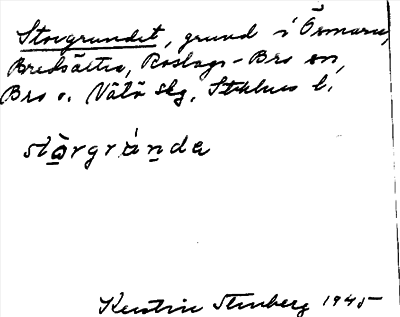 Storgrundet, grund i Örmaren,
Bredsättra, Roslags-Bro sn,
Bro o. Vätö skg, Sthlms l.
stòrgrúnde
Kerstin Stenberg 1945